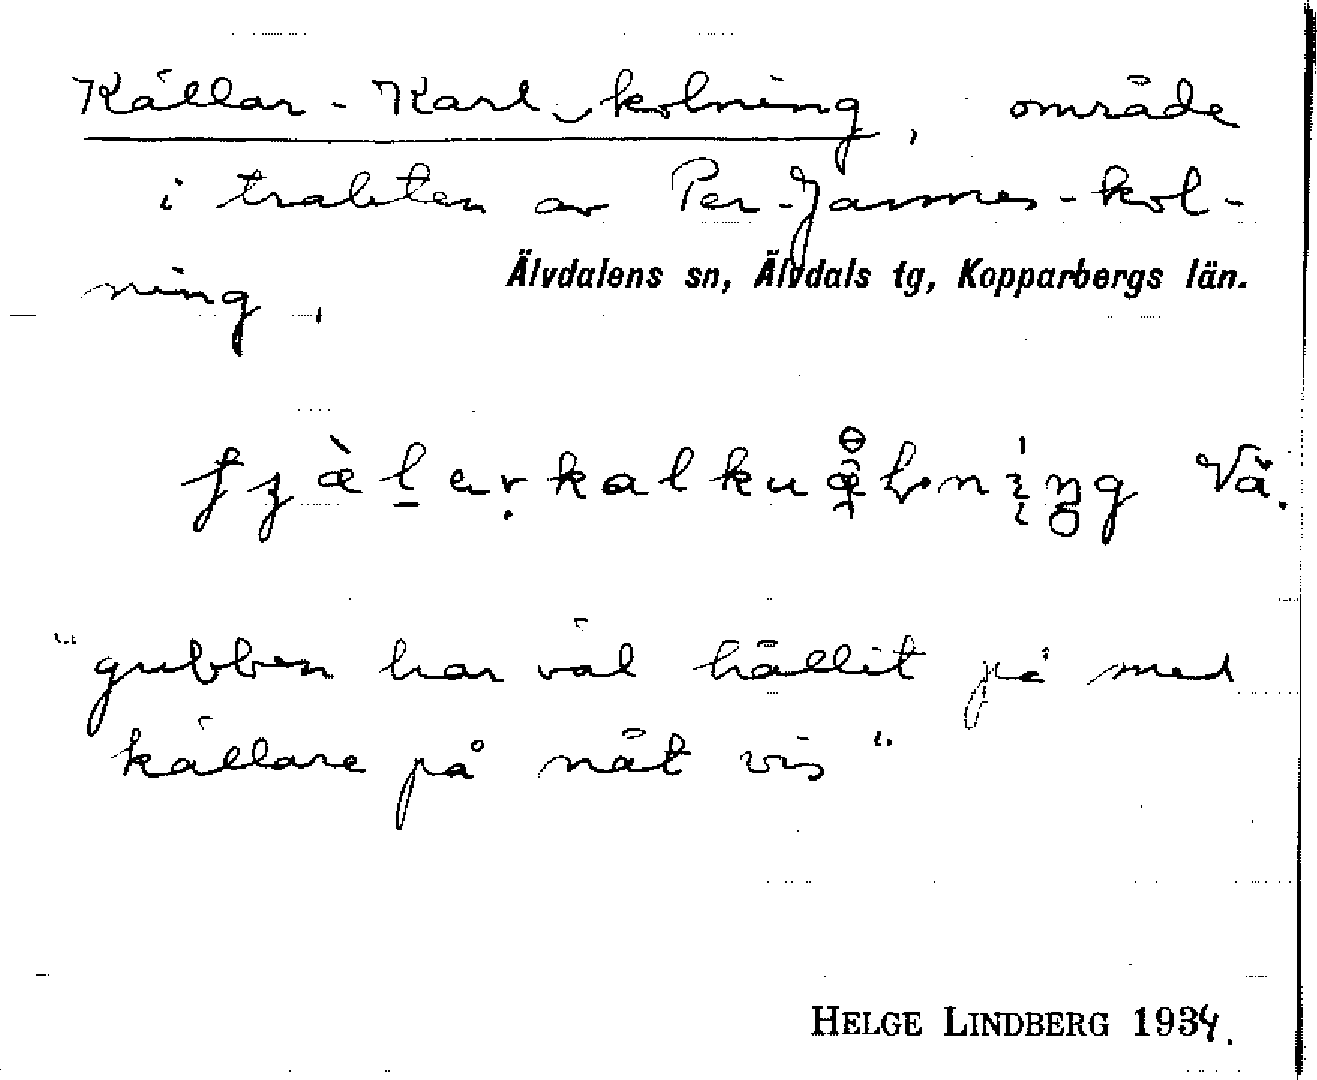 Källar-Karl‿kolning, område
i trakten av Per-Jannes-kol-
ning,
Älvdalens sn, Älvdals tg, Kopparbergs län.
Vä.
"gubben har väl hållit på med
källare på nåt vis"
HELGE LINDBERG 1934.